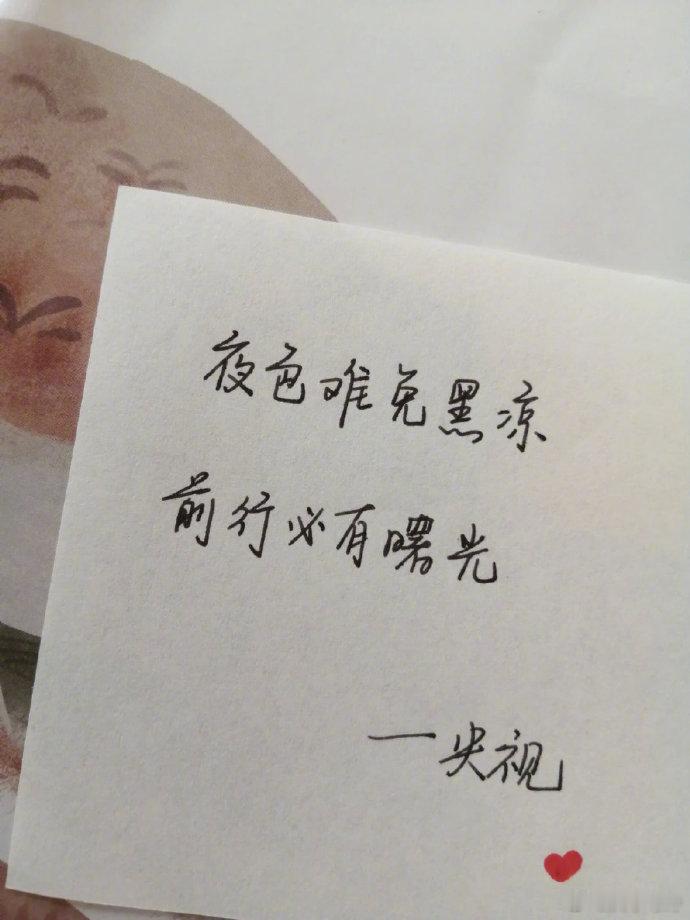 夜色难免黑凉
前行必有曙光
—央视